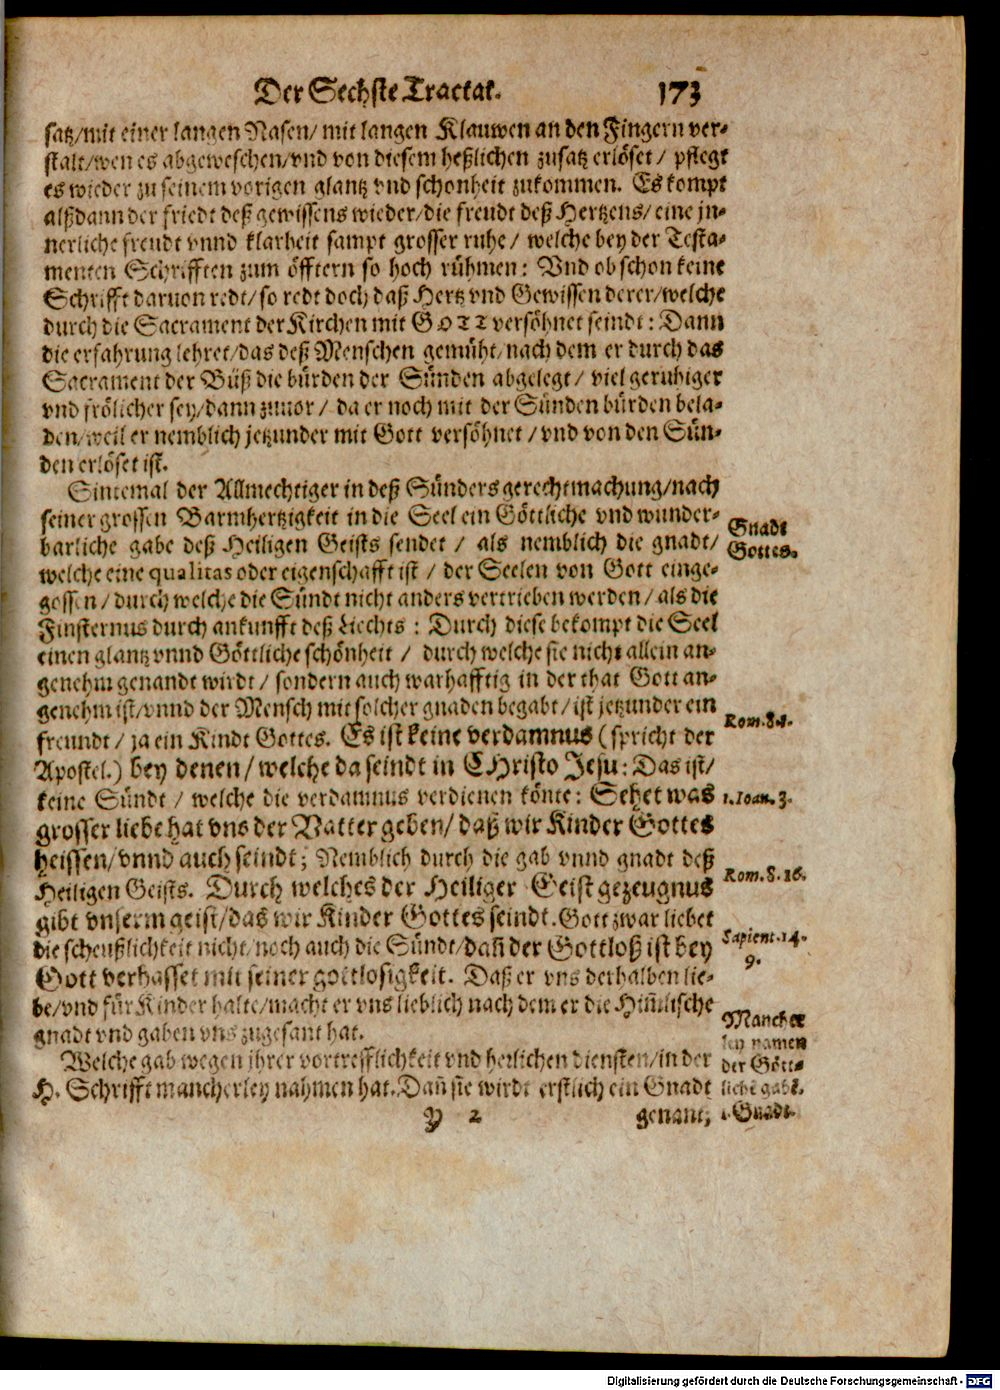 Der Sechste Tractat. 173
satz/mit einer langen Nasen/ mit langen Klauwen an den Fingern ver-
stalt/wen es abgeweschen/vnd von diesem heßlichen zusatz erlöset/ pflegt
es wieder zu seinem vorigen glantz vnd schonheit zukommen. Es kompt
alßdann der friedt deß gewissens wieder/die freudt deß Hertzens/eine jn-
nerliche freudt vnnd klarheit sampt grosser ruhe/ welche bey der Testa-
menten Schrifften zum öfftern so hoch rühmen: Vnd ob schon keine
Schrifft daruon redt/so redt doch daß Hertz vnd Gewissen derer/welche
durch die Sacrament der Kirchen mit GOTT versöhnet seindt: Dann
die erfahrung lehret/das deß Menschen gemüht/nach dem er durch das
Sacrament der Büß die bürden der Sünden abgelegt/ viel geruhiger
vnd frölicher sey/dann zuuor/ da er noch mit der Sünden bürden bela-
den/weil er nemblich jetzunder mit Gott versöhnet/vnd von den Sün-
den erlöset ist.
Sintemal der Allmechtiger in deß Sünders gerechtmachung/nach
seiner grossen Barmhertzigkeit in die Seel ein Göttliche vnd wunder-
barliche gabe deß Heiligen Geists sendet/ als nemblich die gnadt/
Gnadt
Gottes.
welche eine qualitas oder eigenschafft ist/ der Seelen von Gott einge-
gossen/durch welche die Sündt nicht anders vertrieben werden/als die
Finsternus durch ankunfft deß Liechts: Durch diese bekompt die Seel
einen glantz vnnd Göttliche schönheit/ durch welche sie nicht allein an-
genehm genandt wirdt/ sondern auch warhafftig in der that Gott an-
genehm ist/vnnd der Mensch mit solcher gnaden begabt/ist jetzunder ein
Rom. 8.1.
freundt/ ja ein Kindt Gottes. Es ist keine verdamnus (spricht der
Apostel.) bey denen/welche da seindt in CHristo Jesu: Das ist/
keine Sündt/ welche die verdamnus verdienen könte: Sehet was
1. Ioan. 3.
grosser liebe hat vns der Vatter geben/daß wir Kinder Gottes
heissen/vnnd auch seindt; Nemblich durch die gab vnnd gnadt deß
Heiligen Geists. Durch welches der Heiliger Geist gezeugnus
Rom. 8. 16.
gibt vnserm geist/das wir Kinder Gottes seindt. Gott zwar liebet
die scheußlichkeit nicht/noch auch die Sündt/dañ der Gottloß ist bey
Sapient. 14.
9.
Gott verhasset mit seiner gottlosigkeit. Daß er vns derhalben lie-
be/vnd für Kinder halte/macht er vns lieblich nach dem er die Him̃lische
gnadt vnd gaben vns zugesant hat.
Welche gab wegen jhrer vortrefflichkeit vnd herlichen diensten/in der
H. Schrifft mancherley nahmen hat. Dañ sie wirdt erstlich ein Gnadt
Mancher
ley namen
der Gött-
liche gabt.
1. Gnadt.
Y 2 genant;
Digitalisierung gefördert durch die Deutsche Forschungsgemeinschaft - DFG